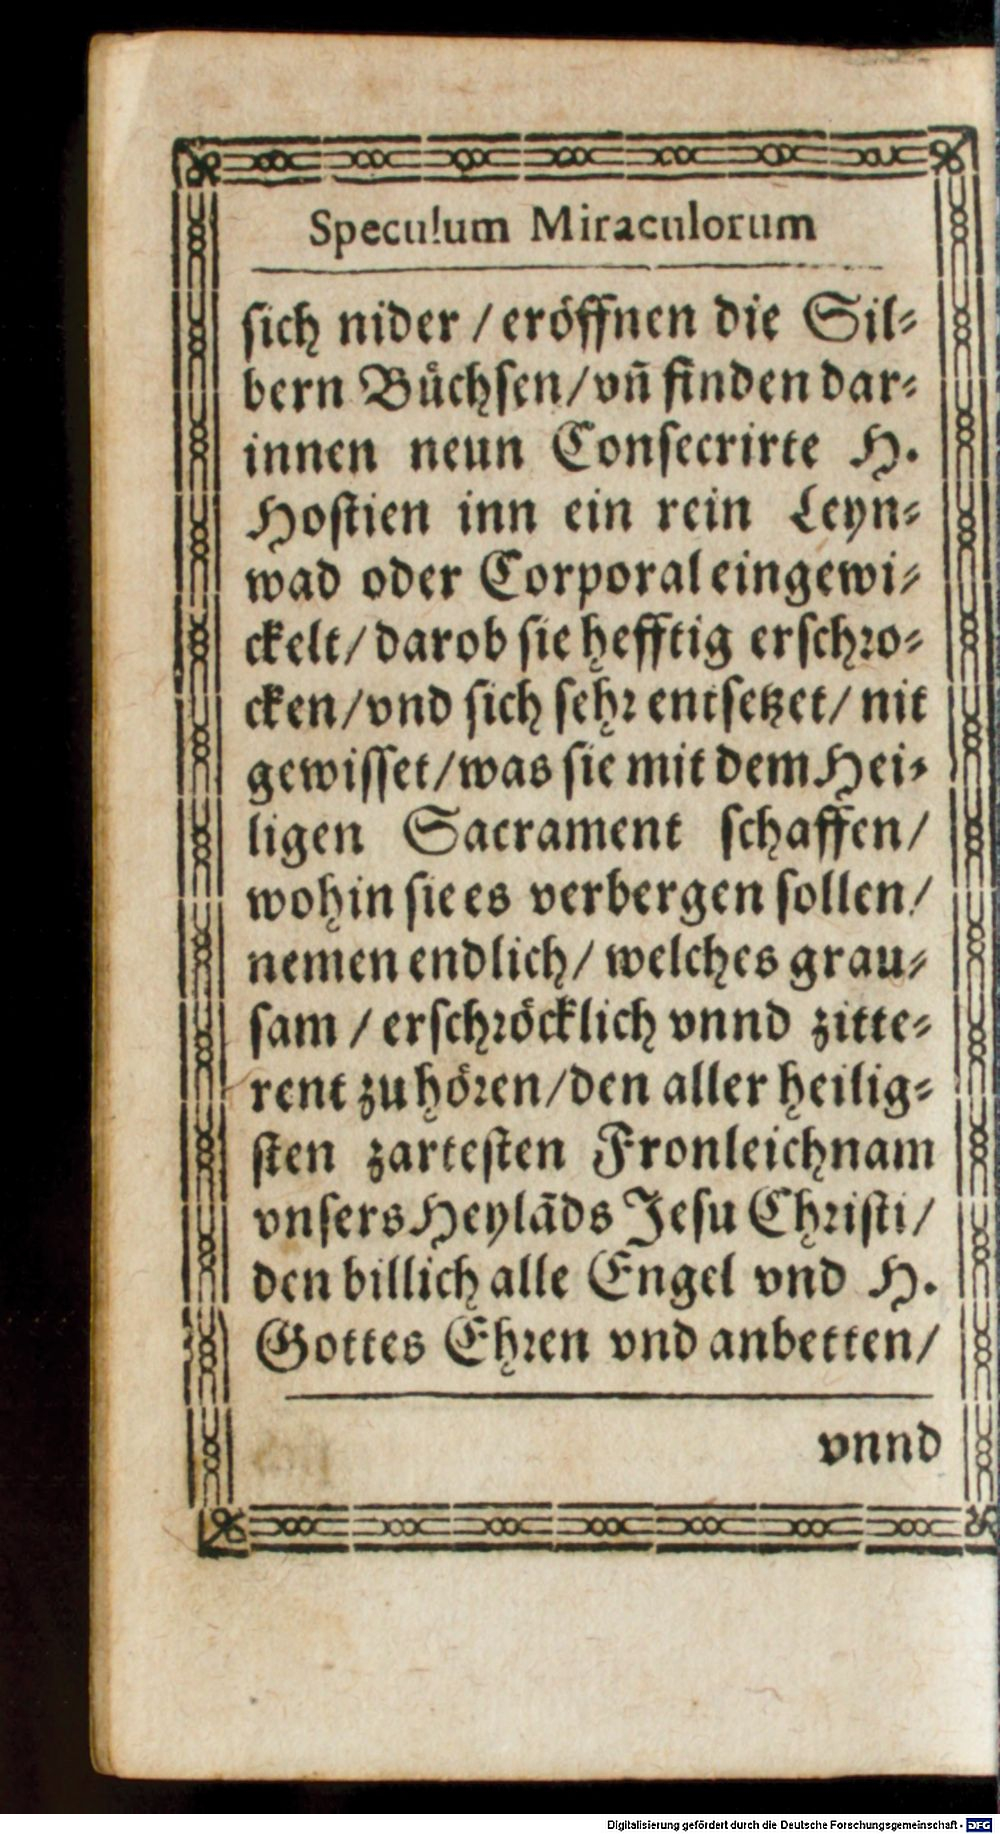 Speculum Miraculorum
sich nider / eröffnen die Sil⸗
bern Büchsen/vñ finden dar⸗
innen neun Consecrirte H.
Hostien inn ein rein Leyn⸗
wad oder Corporal eingewi⸗
ckelt/darob sie hefftig erschro⸗
cken/vnd sich sehr entsetzet/ nit
gewisset/was sie mit dem Hei⸗
ligen Sacrament schaffen/
wohin sie es verbergen sollen/
nemen endlich/ welches grau⸗
sam / erschröcklich vnnd zitte⸗
rent zu hören/den aller heilig⸗
sten zartesten Fronleichnam
vnsers Heylāds Jesu Christi/
den billich alle Engel vnd H.
Gottes Ehren vnd anbetten/
vnnd
Digitalisierung gefördert durch die Deutsche Forschungsgemeinschaft - DFG